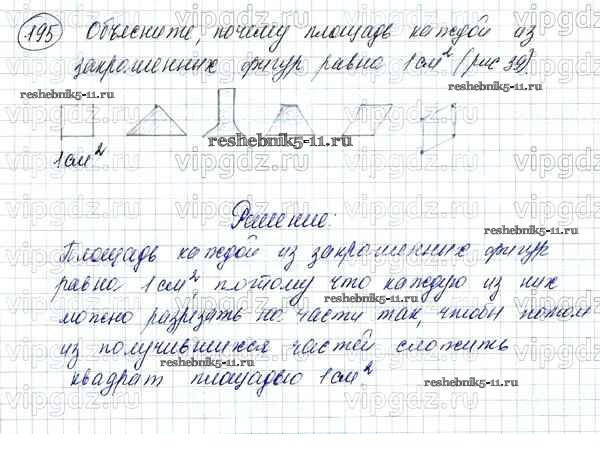 195 Объясните, почему площадь каждой из
закрашенных фигур равна 1 см² (рис 39).
reshebnik5-11.ru
reshebnik5-11.ru
reshebnik5-11.ru
1 см²
Решение:
reshebnik5-11.ru
Площадь каждой из закрашенных фигур
равна 1 см², потому что каждую из них
reshebnik5-11.ru
можно разрезать на части так, чтобы потом
из получившихся частей сложить
квадрат площадью 1 см²
reshebnik5-11.ru
vipgdz.ru